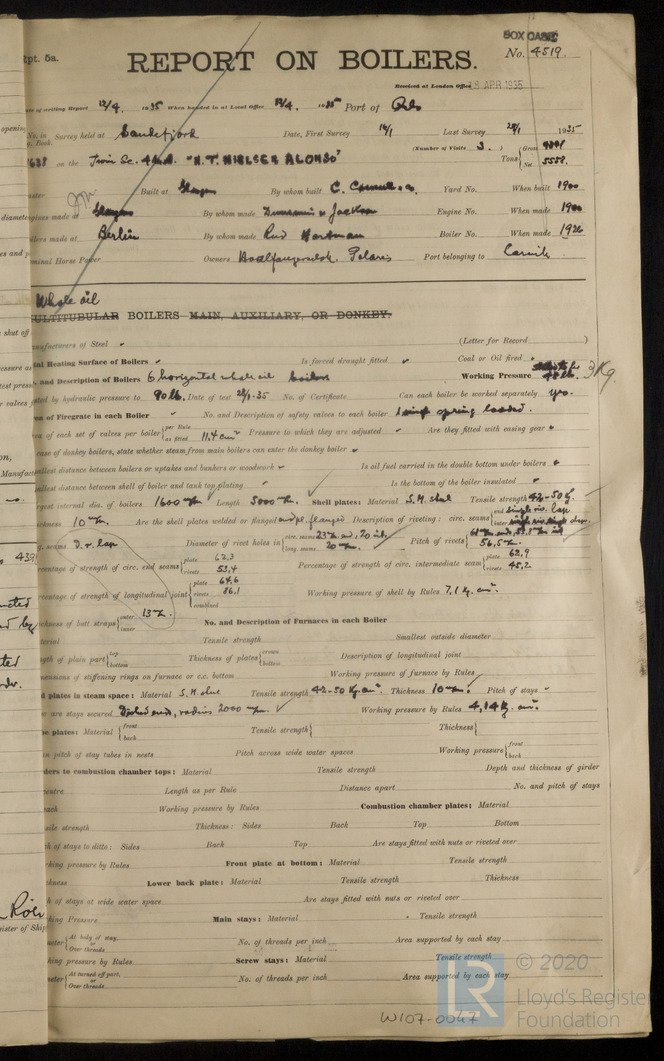 BOX CASE
Rpt. 5a.
REPORT ON BOILERS.
No. 4519.
Received at London Office 18 APR 1935
Date of writing Report 12/4 1935 When handed in at Local Office 1935 Port of Oslo
No. in Survey held at Sandefjord Date, First Survey 14/1 Last Survey 1935
(Number of Visits 3.)
on the Twin Sc. "N.T. NIELSEN ALONSO"
Tons { Gross 9391
Net 5558
Built at Glasgow By whom built C. Connell & Co. Yard No. When built 1900
Engines made at Glasgow By whom made Dunsmuir & Jackson Engine No. When made 1900
Boilers made at Berlin By whom made Rud Hartman Boiler No. When made 1926
Nominal Horse Power Owners Hvalfangerselsk. Polaris Port belonging to Larvik
Whale oil
MULTITUBULAR BOILERS MAIN, AUXILIARY, OR DONKEY.
Manufacturers of Steel (Letter for Record )
Total Heating Surface of Boilers Is forced draught fitted Coal or Oil fired
and Description of Boilers 6 horizontal whale oil boilers Working Pressure 3 Kg.
Tested by hydraulic pressure to 90 lb. Date of test .35 No. of Certificate Can each boiler be worked separately yes.
Area of Firegrate in each Boiler No. and Description of safety valves to each boiler 1 spring loaded.
Area of each set of valves per boiler { per Rule
as fitted 11.4 cm² Pressure to which they are adjusted Are they fitted with easing gear
In case of donkey boilers, state whether steam from main boilers can enter the donkey boiler
Smallest distance between boilers or uptakes and bunkers or woodwork Is oil fuel carried in the double bottom under boilers
Smallest distance between shell of boiler and tank top plating Is the bottom of the boiler insulated
Largest internal dia. of boilers 1600 m/m Length 5000 m/m. Shell plates: Material S.M. steel Tensile strength 42-50 Kg.
Thickness 10 m/m. Are the shell plates welded or flanged end pl. flanged Description of riveting: circ. seams { end single riv. lap
inter.
long. seams D.r. lap Diameter of rivet holes in { circ. seams 23 m/m end, 20 int.
long. seams 20 m/m. Pitch of rivets { 56,5 m/m.
Percentage of strength of circ. end seams { plate 62,3
rivets 53,4 Percentage of strength of circ. intermediate seam { plate 62,9
rivets 45,2
Percentage of strength of longitudinal joint { plate 64,6
rivets 86,1
combined Working pressure of shell by Rules 7,1 Kg. cm².
Thickness of butt straps { outer
inner 13 m/m. No. and Description of Furnaces in each Boiler
Material Tensile strength Smallest outside diameter
Length of plain part { top
bottom Thickness of plates { crown
bottom Description of longitudinal joint
Dimensions of stiffening rings on furnace or c.c. bottom Working pressure of furnace by Rules
End plates in steam space: Material S.M. steel Tensile strength 42-50 Kg. cm² Thickness 10 m/m. Pitch of stays
How are stays secured Dished end, radius 2000 m/m. Working pressure by Rules 4,14 Kg. cm².
Tube plates: Material { front
back Tensile strength { Thickness {
Mean pitch of stay tubes in nests Pitch across wide water spaces Working pressure { front
back
Girders to combustion chamber tops: Material Tensile strength Depth and thickness of girder
centre Length as per Rule Distance apart No. and pitch of stays
each Working pressure by Rules Combustion chamber plates: Material
Tensile strength Thickness: Sides Back Top Bottom
Pitch of stays to ditto: Sides Back Top Are stays fitted with nuts or riveted over
Working pressure by Rules Front plate at bottom: Material Tensile strength
Thickness Lower back plate: Material Tensile strength Thickness
Pitch of stays at wide water space Are stays fitted with nuts or riveted over
Working Pressure Main stays: Material Tensile strength
Diameter { At body of stay,
or
Over threads No. of threads per inch Area supported by each stay
Working pressure by Rules Screw stays: Material Tensile strength
Diameter { At turned off part,
or
Over threads No. of threads per inch Area supported by each stay
W107-0047
LR © 2020
Lloyd's Register
Foundation